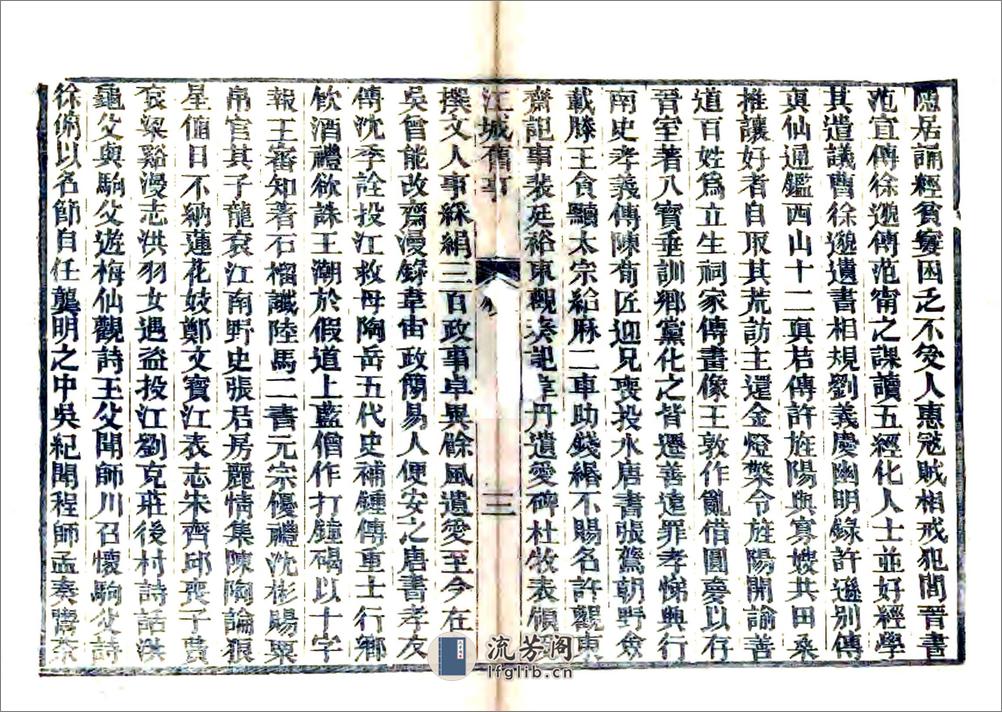 隱居誦經貧窶困乏不受人惠冦賊相戒犯閭晉書
范宣傳徐邈傳范甯之課讀五經化人士並好經學
其遺議曹徐邈遺書相規劉義慶幽明錄許遜別傳
眞仙通鑑西山十二眞君傳許旌陽與寡嫂共田桑
推讓好者自取其荒訪主還金燈檠令旌陽開諭善
道百姓爲立生祠家傳畫像王敦作亂借圓夢以存
晉室著八寶垂訓鄉黨化之皆遷善遠罪孝悌興行
南史孝義傳陳荀匠迎兄喪投水唐書張鷟朝野僉
載滕王貪黷太宗給麻二車助錢緡不賜名許觀東
齋記事裴廷裕東觀奏記韋丹遺愛碑杜牧表領
江城舊事
三
撰文人事綵絹三百政事卓異餘風遺愛至今在
吳曾能改齋漫錄韋宙政簡易人便安之唐書孝友
傳沈季詮投江救母陶岳五代史補鍾傳重士行鄉
飲酒禮欲誅王潮於假道上藍僧作打鐘碣以十字
報王審知著石榴讖陸馬二書元宗優禮沈彬賜粟
帛官其子龍袞江南野史張君房麗情集陳陶論狠
星脩日不納蓮花妓鄭文寶江表志朱齊邱喪子費
袞梁谿漫志洪羽女遇盜投江劉克莊後村詩話洪
龜父與駒父遊梅仙觀詩王父聞師川召懷駒父詩
徐俯以名節自任龔明之中吳紀聞程師孟奏
流芳閣
lfglib.cn